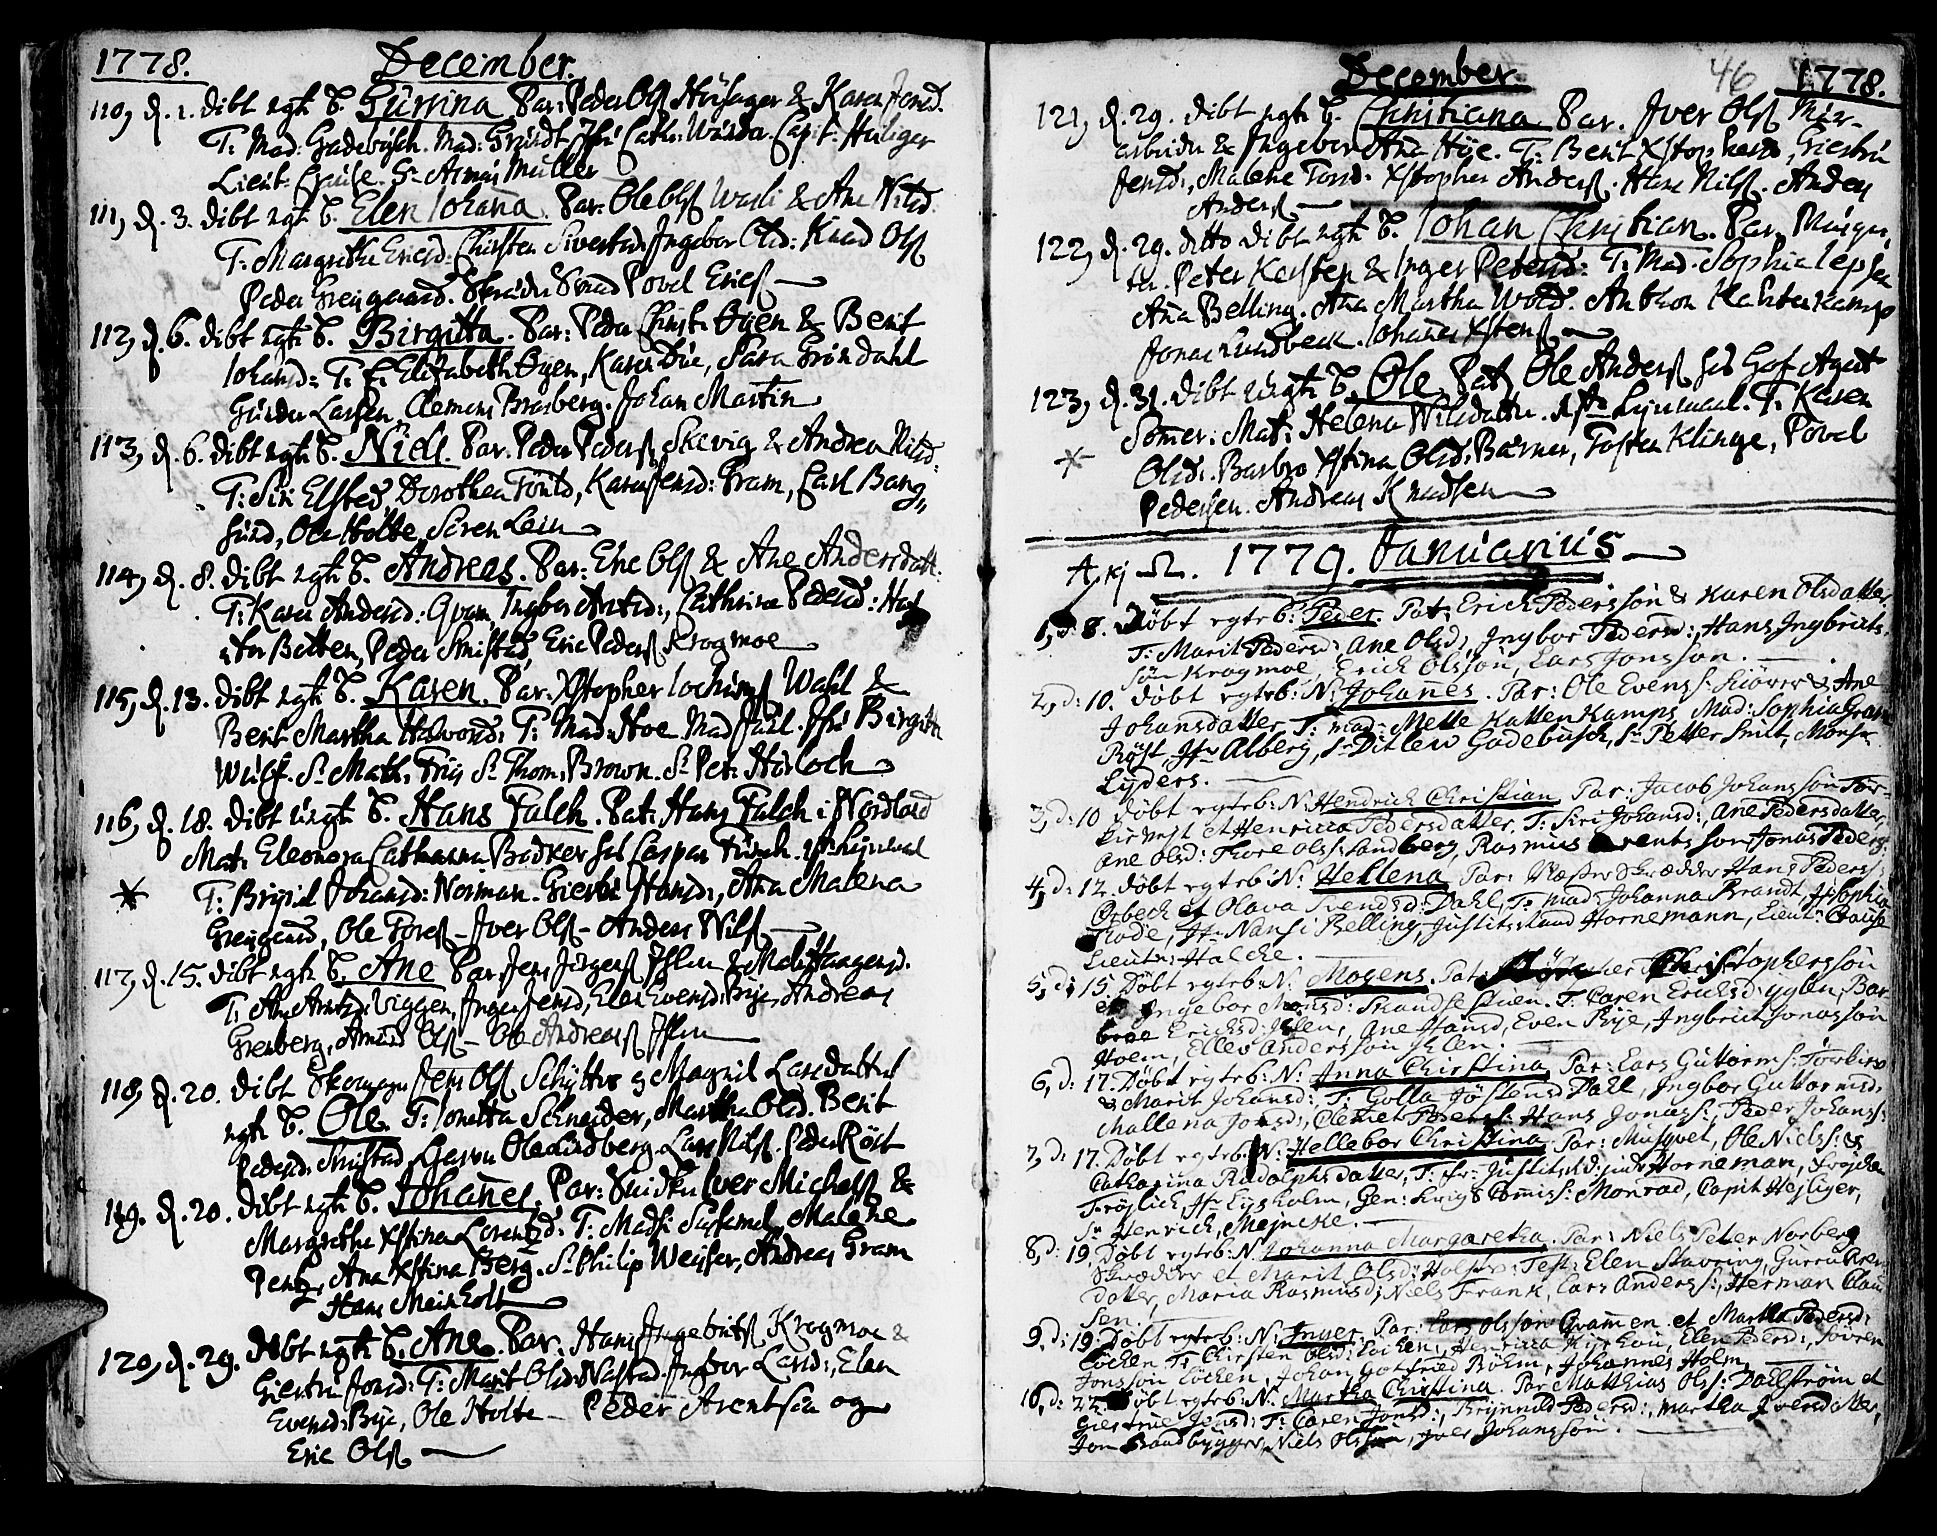 1778. December.
110, d. 1. dibt egt B. Gurrina Par: Peder Olß Huusager & Karen Jensd.
T: Mad: Gadebusch. Mad: Grundt Capt: Heiliger
Lieut: Muller
111, d. 3. dibt egt B. Elen Johana. Par: Ole Olß & Ane Nilsd.
T: Margrethe Ericsd: Chirsten Sivertsd: Ingebor Olsd: Knud Olß
Peder Greisgaard. Povel Ericß
112, d. 6. dibt egt B. Birgitta. Par: Peder Christ: Øyen & Berit
Johansd: T: Elizabeth Øyen, Karen Due, Sara Gröndahl
Gunder Larsen, Clemens Brasberg. Johan Martin
113, d. 6. dibt egt B. Niels. Par: Peder Pederß Skevig & Andrea Nilsd:
T: Siri Elsted Dorothea Karen Jensd: Gram, Carl Bang,
sund, Ole Holte, Sören Lein
114, d. 8. dibt egt B. Andreas. Par: Eric Olß & Ane Andersdatt:
T: Karen Andersd: Gram, Ingbor Arntsd:, Cathrina Pedersd:
Betten, Peder Smistad, Eric Pederß Krogmoe
115, d. 13. dibt egt B. Karen. Par: Xstopher Jochimß Wahl &
Berit Martha Halvorsd: T: Mad: Hoe Mad Juhl. Jfr: Birgitta
Wulf. Sr. Math: Friis Sr. Thom: Brown. Sr. Pet: Horloch
116, d. 18. dibt uegt B. Hans Falch. Pat: Hans Falch i Nordland
Mat: Eleonora Catharina Bödker hos Caspar Finch.
T: Brynil Johansd: Norman. Giertru Hansd:, Ana Malena
Greisgaard, Ole Toreß - Iver Olß - Anders Nilß
117, d. 15. dibt egt B. Ane Par Jens Jörgenß & Malj Haagensd.
T: Ane Arntsd: Viggen, Inger Jensd, Elen Evensd: Bye, Andreas
Grenberg, Olß - Ole Andreasß
118, d. 20. dibt Skomager Jens Olß Schytte og Magnil Larsdatter
egt B. Ole. T: Jonetta Schneider, Martha Olsd. Berit
Pedersd: Smistad Ole Lindberg. Lars Nilß. Peder Röst
119. d. 20. dibt egt B. Johanes. Par: Snidker Iver Michelß &
Margrethe Xstina Lorentzd: T: Mads: Malene
Pentz, Ana Xstina Berg. Sr. Philip Weisser, Andreas Gram
Hans Meinholt
120, d. 29. döbt egt B. Ane. Par: Hans Ingebritß Krogmoe &
Giertru Jonsd: T: Marit Olsd: Ingbor Larsd:, Elen
Evensd: Bye, Ole Holte - Peder Arentsen og
Eric Olß
December. 46 1778.
121, d. 29. dibt egt B. Christiana Par. Iver Olß Mur-
arbeider & Ingebor Ana Høe. T: Berit Xstophersd, Giertru
Jensd:, Malene Torsd: Xstopher Anderß. Hans Nilß. Anders
Anderß
122, d. 29. ditto dibt egt B. Johan Christian. Par. Musque,
ter. Peter Kersten & Inger Petersd: T: Mad: Sophia Jepsen
Ana Belling. Ana Martha Wold. Anthon Kattenkamp
Jonas Lundbeck. Johanes Xstenß
123, d. 31. dibt uegt B. Ole. Pat: Ole Anderß hos Hof Agent
Sömer: Mat: Helena Nilsdatter. Leyermaal. T: Karen
Olsd:. Barbro Xstina Olsd: Barner, Tosten Klinge, Povel
Pedersen. Andreas Knudsen
1779. Januarius
1, d: 8. Døbt egte B: Peder. Pat: Erich Pedersson & Karen Olsdatter.
T: Marit Pedersd: Ane Olsd:, Ingbor Pedersd:, Hans Ingbricts
søn Krogmoe, Erick Olsson, Lars Jonsson.
2, d: 10. døbt egteb: N: Johannes. Par: Ole Evens: & Ane
Johansdatter, T: mad: Mette Kattenkamps, Mad: Sophia Gram
Røst, Hr Alberg, Sr Ditlew Gadebusch, Sr Petter Smit, Monsr
Lyders.
3, d: 10 døbt egteb: N: Hendrich Christian Par: Jacob Johansson Tør-
kirvegt et Henricca Pedersdatter, T: Siri Johansd:, Ane Pedersdatter,
Ane Olsd: Thore Ols: Sandberg, Rasmus Arentsson, Jonas Peders:
4, d: 12. døbt egteb: N: Hellena Par: Mæster Skrædder Hans Peders:
Orbeck et Olava Svendsd: Dahl, T: mad: Johanna Brandt, Jfr Sophia
Rode, Hr Nansi Belling, Justitsraad Hornemann, Lieut: Crause
Lieut: Halcke.
5, d: 15. Døbt egteb: N: Mogens. Pat: Christophersson
et Ingebor Monsd: T: Caren Ericksd: yglen, Bar
broe Ericksd: Ihlen, Ane Hansd, Even Bye, Ingbrict Jonasson
Holm, Ellev Andersson Ihlen.
6, d: 17. Døbt egteb: N: Anna Christina Par: Lars Guttorms:
& Marit Johansd: T: Golla Jøstensd: Dahl, Ingbor Guttormsd:
Mallena Jonsd:, Clemet Peders: Hans Jonas:, Peder Johans:
7, d: 17. Døbt egteb: N: Hellebor Christina Par: Musqvet, Ole Niels: &
Catharina Rudolphsdatter, T: Fr: Justitsraad: Horneman, Frøiken
Frøylich, Hr Lysholm, Gen: Krigs Comiss: Monrad, Capit Hejliger,
Sr Henrich Meincke.
8, d: 19, Døbt egteb: N: Johanna Margaretha. Par: Niels Peter Norberg
Skrædder et Marit Olsd: Holste: Test: Elen Stavring, Gurru Aren
datter, Maria Rasmusd: Niels Frank, Lars Anders:, Herman Clau
sen.
9, d: 19. Døbt egteb: N: Inger. Par: Lars Olsson Gramen et Martha Pedersd:
Løcken T: Chirsten Olsd: Løcken, Henrica Elen Pedersd:, Søvren
Jonsson Løcken, Johan Gotfried Bøhm, Johannes Holm
10, d: 22. Døbt egteb: N: Martha Christina. Par: Matthias Ols: Dahlstrøm et
Giertrue Jensd: T: Caren Jonsd:, Brynnild Pedersd:, Martha Iversdatter,
Jon Brandbygger, Niels Olsson, Iver Johansson.